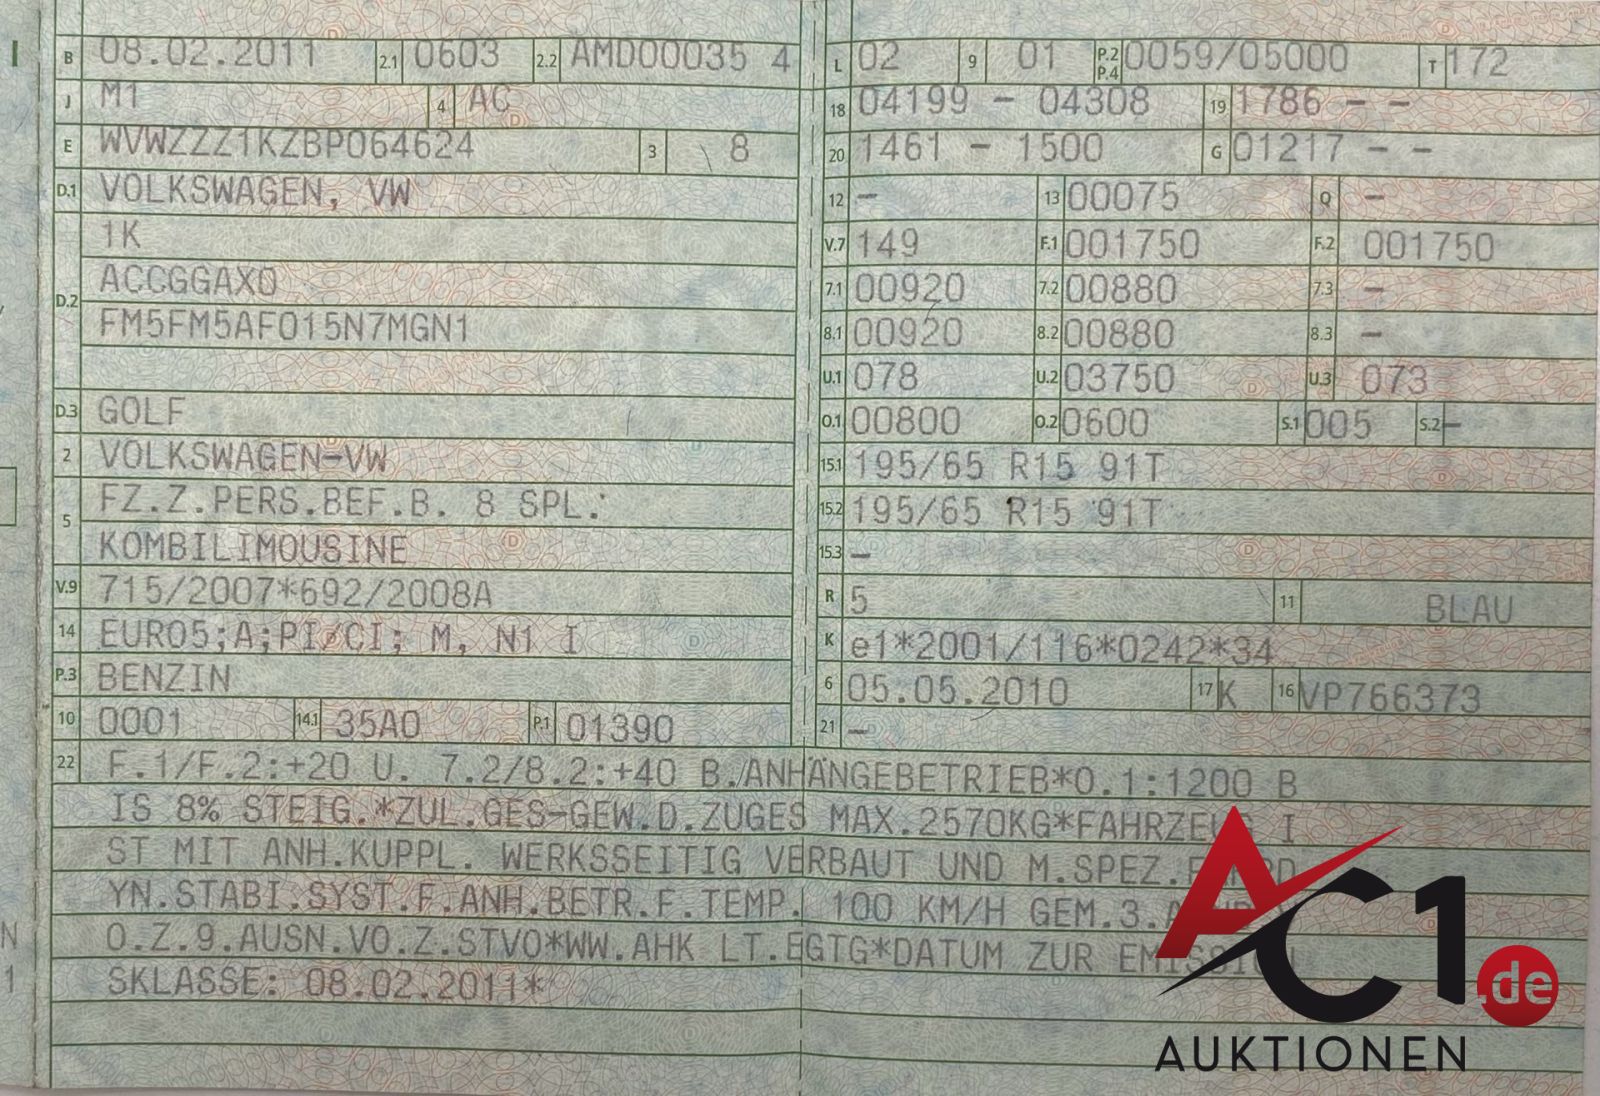 B 08.02.2011 2.1 0603 2.2 AMD00035 4
J M1 4 AC
E WVWZZZ1KZBP064624 3 8
D.1 VOLKSWAGEN, VW
1K
D.2 ACCGGAX0
FM5FM5AF015N7MGN1
D.3 GOLF
2 VOLKSWAGEN-VW
5 FZ.Z.PERS.BEF.B. 8 SPL.:
KOMBILIMOUSINE
V.9 715/2007*692/2008A
14 EURO5;A;PI/CI; M, N1 I
P.3 BENZIN
10 0001 14.1 35A0 P.1 01390
L 02 9 01 P.2 P.4 0059/05000 T 172
18 04199 - 04308 19 1786 - -
20 1461 - 1500 G 01217 - -
12 - 13 00075 Q -
V.7 149 F.1 001750 F.2 001750
7.1 00920 7.2 00880 7.3 -
8.1 00920 8.2 00880 8.3 -
U.1 078 U.2 03750 U.3 073
O.1 00800 O.2 0600 S.1 005 S.2 -
15.1 195/65 R15 91T
15.2 195/65 R15 91T
15.3 -
R 5 11 BLAU
K e1*2001/116*0242*34
6 05.05.2010 17 K 16 VP766373
21 -
22 F.1/F.2:+20 U. 7.2/8.2:+40 B.ANHÄNGEBETRIEB*O.1:1200 B
IS 8% STEIG.*ZUL.GES-GEW.D.ZUGES MAX.2570KG*FAHRZEUG I
ST MIT ANH.KUPPL. WERKSSEITIG VERBAUT UND M.SPEZ.
YN.STABI.SYST.F.ANH.BETR.F.TEMP. 100 KM/H GEM.3.
O.Z.9.AUSN.VO.Z.STVO*WW.AHK LT.EGTG*DATUM ZUR EMISSION
SKLASSE: 08.02.2011*
AC1.de
AUKTIONEN